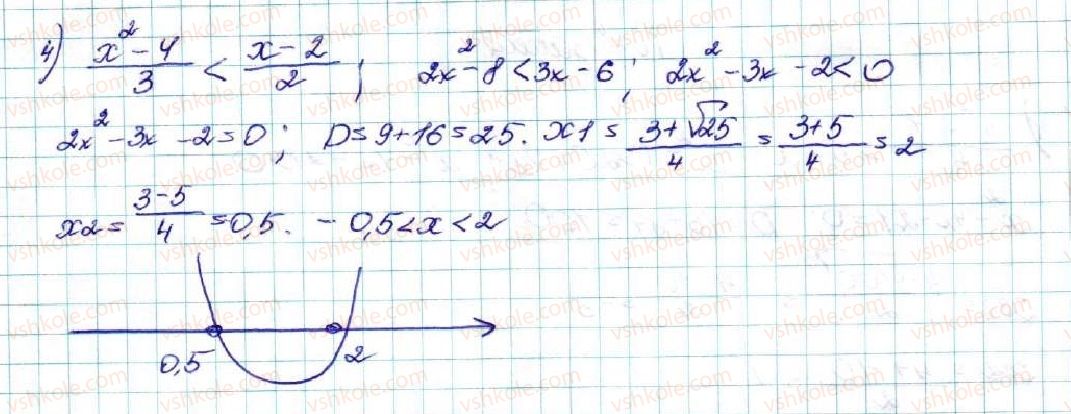 4) (x² - 4)/3 < (x - 2)/2; 2x² - 8 < 3x - 6; 2x² - 3x - 2 < 0
2x² - 3x - 2 = 0; D = 9 + 16 = 25. x1 = (3 + √25)/4 = (3 + 5)/4 = 2
x2 = (3 - 5)/4 = 0,5. - 0,5 < x < 2
0,5 2